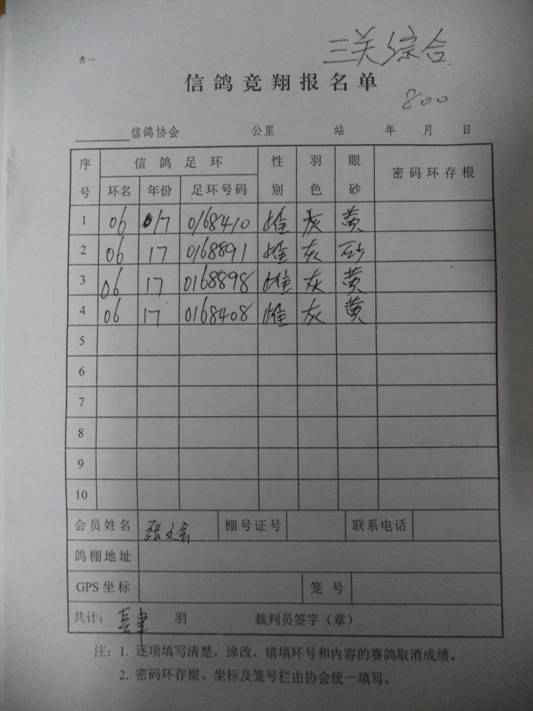 表一
三关综合
信鸽竞翔报名单
800
信鸽协会 公里 站 年 月 日
序号 信鸽足环 性别 羽色 眼砂 密码环存根
环名 年份 足环号码
1 06 017 0168410 雌 灰 黄
2 06 17 0168891 雄 灰 砂
3 06 17 0168898 雌 灰 黄
4 06 17 0168408 雌 灰 黄
5
6
7
8
9
10
会员姓名 张文 棚号证号 联系电话
鸽棚地址
GPS坐标 笼号
共计: 肆 羽 裁判员签字（章）
注: 1. 逐项填写清楚，涂改、错填环号和内容的赛鸽取消成绩。
2. 密码环存根、坐标及笼号栏由协会统一填写。